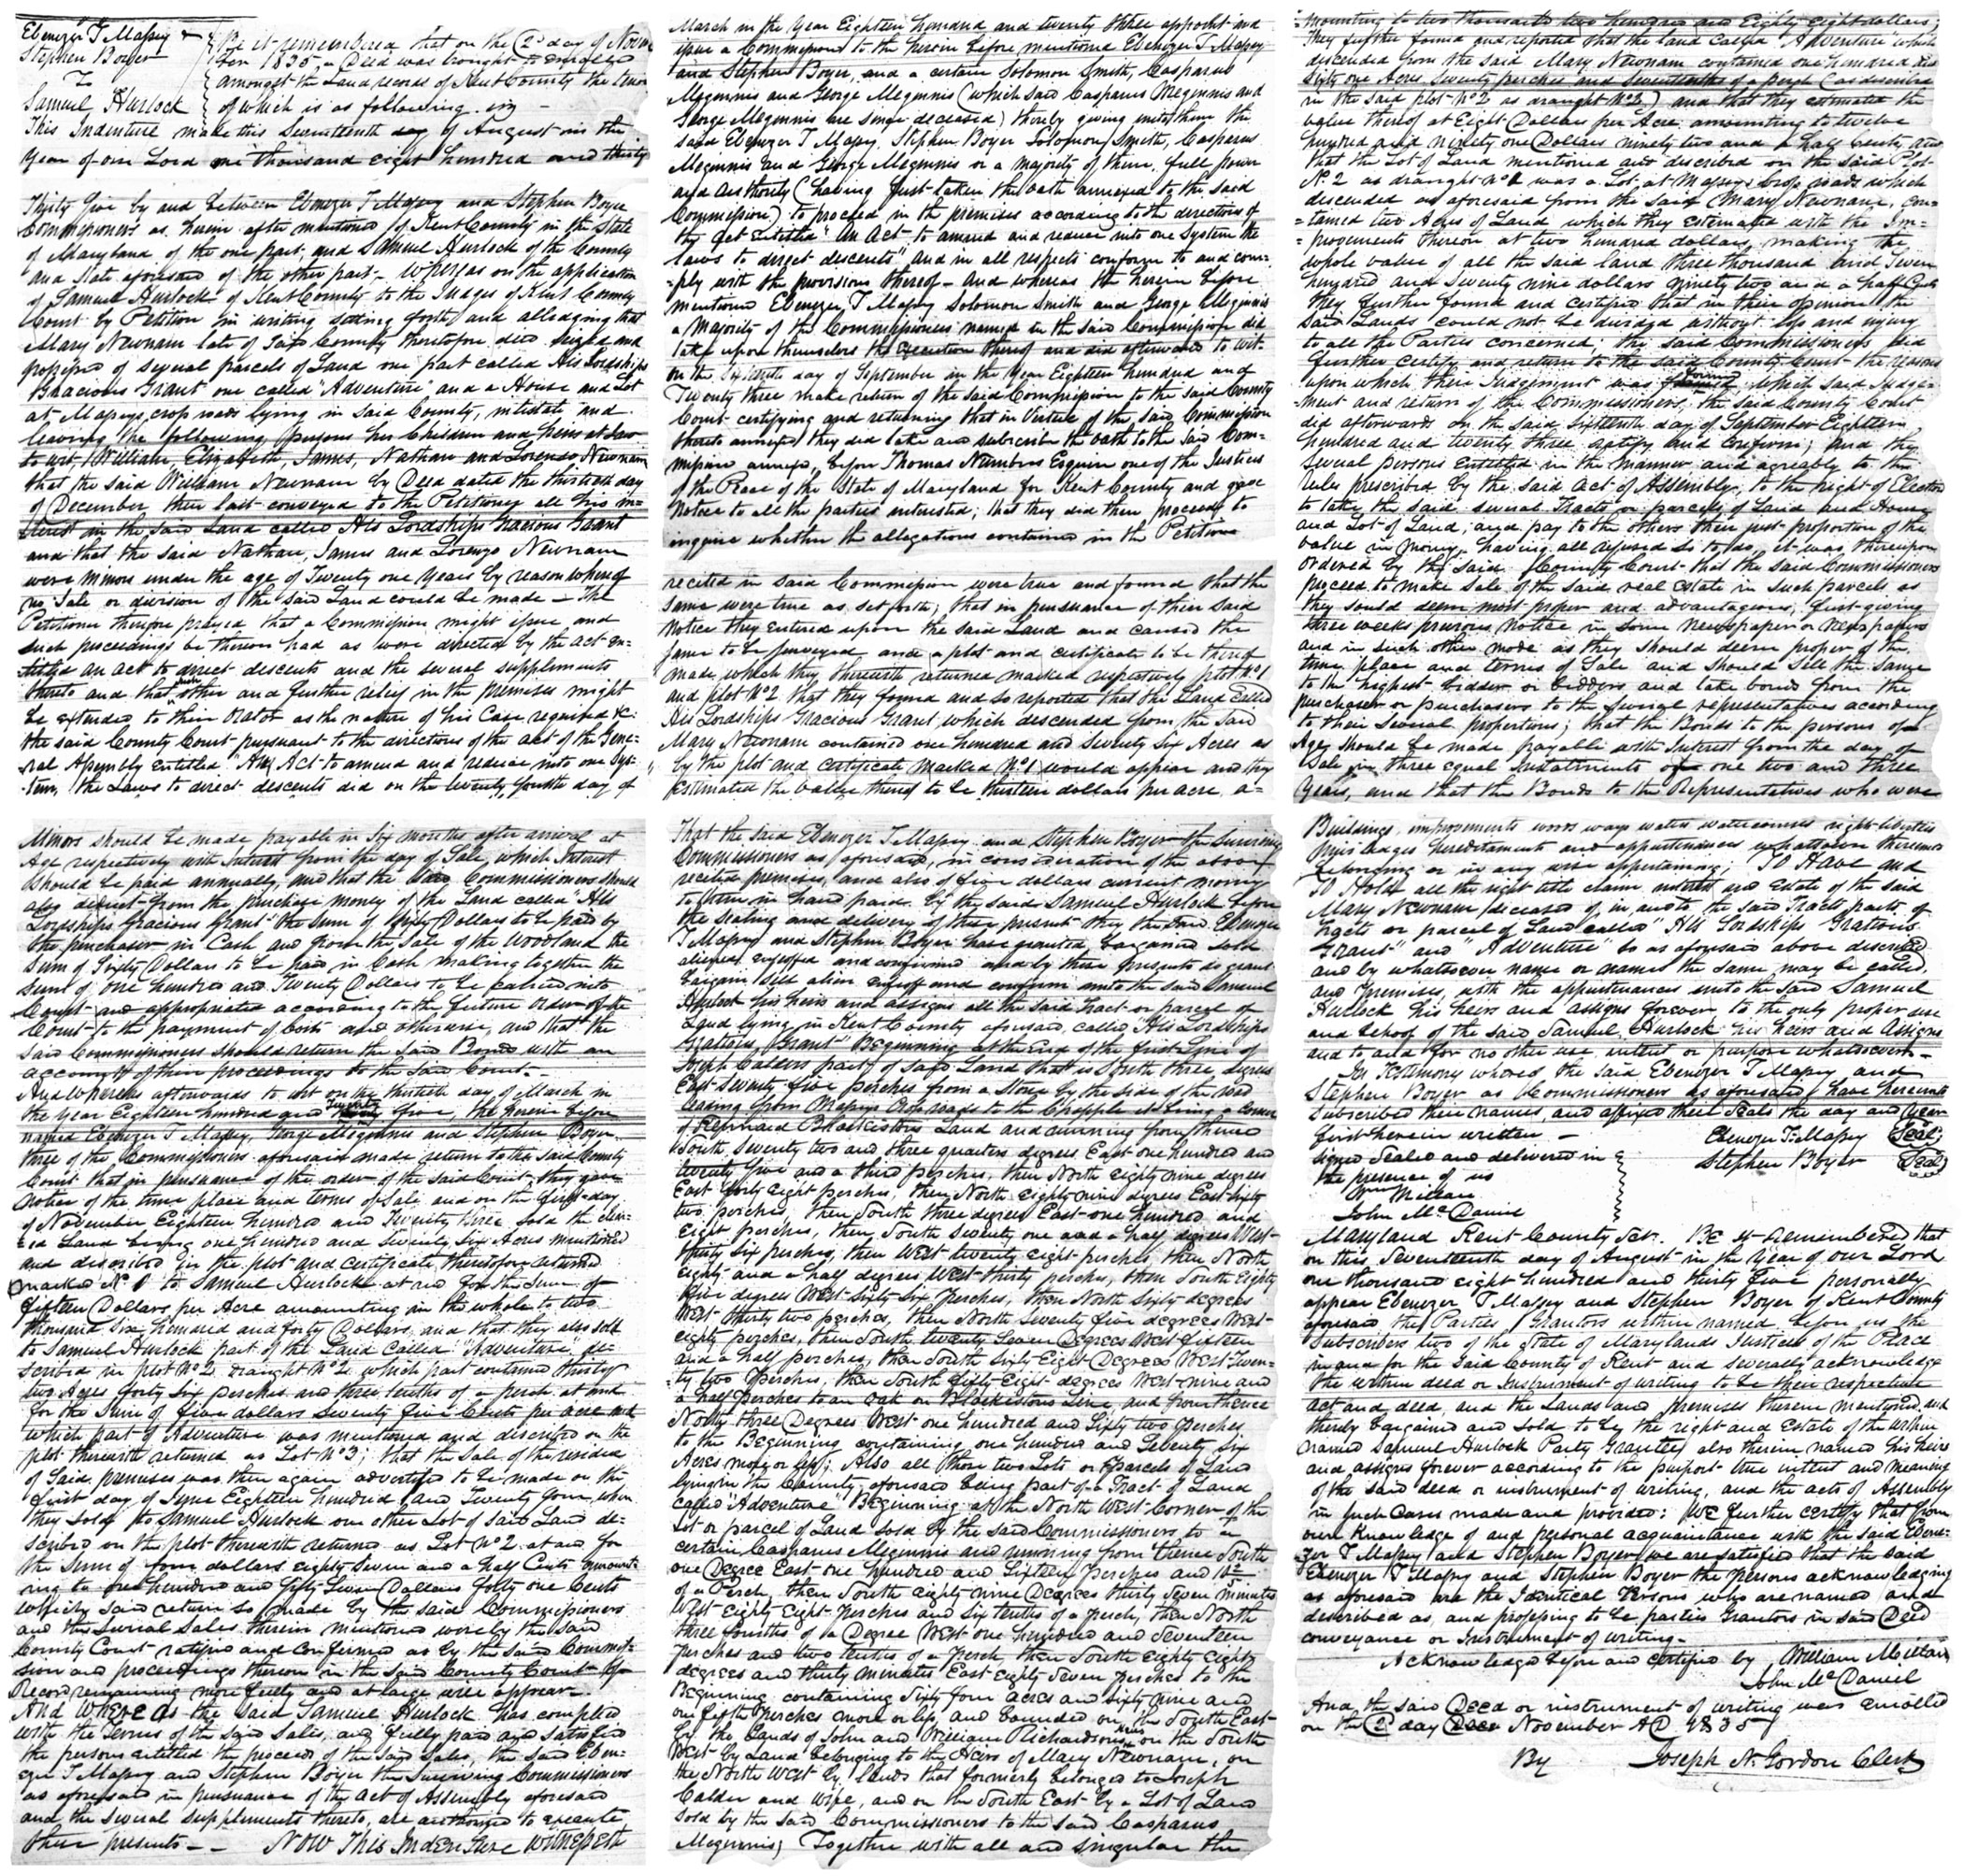 Ebenezer T Massey &
Stephen Boyer
To
Samuel Hurlock
Be it remembered that on the 2d day of Novem
ber 1835, a Deed was brought to enrolled
amongst the Land records of Kent County the tenor
of which is as following. viz -
This Indenture made this Seventeenth day of August in the
Year of our Lord one thousand eight hundred and thirty
Thirty five by and between Ebenezer T Massey and Stephen Boyer
Commissioners as herein after mentioned of Kent County in the State
of Maryland of the one part, and Samuel Hurlock of the County
and State aforesaid of the other part, - Whereas on the application
of Samuel Hurlock of Kent County to the Judges of Kent County
Court by Petition in writing setting forth and alledging that
Mary Newnam late of said County theretofore died seized and
possessed of several parcels of Land one part called His Lordships
Gracious Grant one called "Adventure" and a House and Lot
at Masseys cross roads lying in said County, intestate and
leaving the following persons her Children and heirs at Law
to wit, William, Elizabeth, James, Nathan and Lorenzo Newnam
that the said William Newnam by Deed dated the thirtieth day
of December, then last conveyed to the Petitioner all his in=
terest in the said Land called His Lordships Gracious Grant
and that the said Nathan, James and Lorenzo Newnam
were minors under the age of Twenty one Years by reason whereof
no Sale or division of the said Land could be made - The
Petitioner therefore prayed that a Commission might issue and
such proceedings be thereon had as were directed by the act en=
titled an act to direct descents and the several supplements
thereto and that such other and further relief in the premises might
be extended to their Orator as the nature of his Case required &c.
the said County Court pursuant to the directions of the act of the Gene=
ral Assembly entitled "An Act to amend and reduce into one Sys=
tem, the Laws to direct descents did on the twenty fourth day of
March in the Year Eighteen hundred and twenty three appoint and
issue a Commission to the herein before mentioned Ebenezer T Massey
and Stephen Boyer, and a certain Solomon Smith, Casparus
Meginnis and George Meginnis (which said Casparus Meginnis and
George Meginnis are since deceased) thereby giving unto them the
said Ebenezer T Massey, Stephen Boyer Solomon Smith, Casparus
Meginnis and George Meginnis or a majority of them, full power
and authority (having first taken the oath annexed to the said
Commission) to proceed in the premises according to the directions of
the Act entitled "An Act to amend and reduce into one System the
laws to direct descents" and in all respects conform to and com=
=ply with the provisions thereof - And whereas the herein before
mentioned Ebenezer T Massey Solomon Smith and George Meginnis
a Majority of the Commissioners named in the said Commission did
take upon themselves the execution thereof and did afterwards to wit
on the sixteenth day of September in the Year Eighteen hundred and
Twenty three make return of the said Commission to the said County
Court certifying and returning that in Virtue of the said Commission
thereto annexed they did take and subscribe the oath to the said Com=
mission annexed, before Thomas Numbers Esquire one of the Justices
of the Peace of the State of Maryland for Kent County and gave
notice to all the parties interested; that they did then proceed to
inquire whether the allegations contained in the Petition
recited in said Commission were true and found that the
same were true as set forth; that in pursuance of their said
notice they entered upon the said Land and caused the
same to be surveyed and a plot and certificate to be thereof
made which they therewith returned marked respectively plot No 1
and plot No 2 that they found and so reported that the Land called
His Lordships Gracious Grant which descended from the said
Mary Newnam contained one hundred and Seventy Six Acres as
by the plot and certificate marked No 1 would appear and they
Estimated the value thereof to be thirteen dollars per acre, a=
mounting to two thousand two hundred and Eighty eight dollars;
They further found and reported that the land called "Adventure" which
descended from the said Mary Newnam contained one hundred and
Sixty one Acres Seventy perches and seven tenths of a perch (as described
in the said plot No 2 as draught No 2) and that they estimated the
value thereof at Eight Dollars per Acre amounting to twelve
hundred and ninety one Dollars ninety two and a half cents, and
that the Lot of Land mentioned and described on the said Plot
No. 2 as draught No 1 was a Lot at Masseys Cross roads which
descended as aforesaid from the said Mary Newnam, con=
=tained two Acres of Land which they estimated with the Im=
=provements thereon at two hundred dollars, making the
whole value of all the said land three thousand and Seven
hundred and Seventy nine dollars ninety two and a half Cents
They further found and certified that in their opinion the
said Lands could not be divided without loss and injury
to all the Parties concerned; the said Commissioners did
further certify and return to the said County Court the reasons
upon which their Judgement was formed which said Judge=
=ment and return of the Commissioners, the said County Court
did afterwards on the said Sixteenth day of September Eighteen
hundred and twenty three, ratify and confirm; and the
several persons entitled in the manner and agreably to the
rules prescribed by the said Act of Assembly, to the right of Election
to take the said several Tracts or parcels of Land and House
and Lot of Land, and pay to the others their just proportion of the
value in money, having all refused so to do, it was thereupon
ordered by the said County Court that the said Commissioners
proceed to make Sale of the said real estate in such parcels as
they should deem most proper and advantageous, first giving
three weeks previous notice in some Newspaper or Newspapers
and in such other mode as they should deem proper of the
time place and terms of Sale and should sell the same
to the highest bidder or bidders and take bonds from the
purchaser or purchasers to the several representatives according
to their several proportions; that the Bonds to the persons of
Age should be made payable with Interest from the day of
Sale in three equal Instalments of one two and three
Years, and that the Bonds to the Representatives who were
Minors should be made payable in Six months after arrival at
Age respectively with Interest from the day of Sale, which Interest
should be paid annually, and that the said Commissioners should
also deduct from the purchase money of the Land called "His
Lordships Gracious Grant" the Sum of Sixty Dollars to be paid by
the purchaser in Cash and from the Sale of the Woodland the
Sum of Sixty Dollars to be paid in Cash making together the
Sum of one hundred and Twenty Dollars to be carried into
Court and appropriated according to the future Order of the
Court to the payment of Costs and otherwise, and that the
said Commissioners should return the said Bonds with an
account of their proceedings to the said Court. -
And whereas afterwards to wit on the thirtieth day of March in
the Year Eighteen hundred and twenty five, the herein before
named Ebenezer T Massey, George Meginnis and Stephen Boyer
three of the Commissioners aforesaid made return to the said County
Court that in pursuance of the order of the said Court they gave
notice of the time place and terms of Sale and on the first day
of November Eighteen hundred and Twenty three sold the clea=
red Land being one hundred and Seventy Six Acres mentioned
and described in the plot and certificate therewith returned
marked No. 1 to Samuel Hurlock at and for the Sum of
fifteen Dollars per Acre amounting in the whole to two
thousand Six hundred and forty Dollars, and that they also sold
to Samuel Hurlock part of the Land called "Adventure" de=
scribed in plot No 2 Draught No 2 which part contained thirty
two Acres forty Six perches and three tenths of a perch at and
for the Sum of five dollars Seventy five Cents per acre and
which part of Adventure was mentioned and described on the
plot therewith returned as Lot No 3; that the Sale of the residue
of Said premises was then again advertised to be made on the
first day of June Eighteen hundred and Twenty four, when
they sold to Samuel Hurlock one other Lot of said Land de=
scribed on the plot therewith returned as Lot No 2 at and for
the Sum of four dollars eighty Seven and a half Cents amount=
ing to one hundred and fifty Seven Dollars forty one Cents
which said return so made by the said Commissioners
and the Several Sales therein mentioned were by the said
County Court ratified and confirmed as by the said Commis=
sion and proceedings thereon in the said County Court of
Record remaining more fully and at large will appear.
And Whereas the said Samuel Hurlock has complied
with the Terms of the said Sales, and fully paid and satisfied
the persons entitled the proceeds of the said Sales, the said Eben=
ezer T Massey and Stephen Boyer the Surviving Commissioners
as aforesaid in pursuance of the Act of Assembly aforesaid
and the several supplements thereto, are authorized to execute
these presents - - Now This Indenture Witnesseth
That the said Ebenezer T Massey and Stephen Boyer the Surviving
Commissioners as aforesaid, in consideration of the above
recited premises, and also of five dollars current money
to them in hand paid by the said Samuel Hurlock before
the sealing and delivery of these present they the said Ebenezer
T Massey and Stephen Boyer have granted, bargained sold
aliened enfeoffed and confirmed and by these presents do grant
bargain sell alien enfeoff and confirm unto the said Samuel
Hurlock his heirs and assigns all the said Tract or parcel of
Land lying in Kent County aforesaid, called His Lordships
Gracious Grant" Beginning at the End of the first Line of
Joseph Calders part of said Land that is South three degrees
East Seventy five perches from a Stone by the side of the road
leading from Masseys Cross roads to the Chapple it being a corner
of Kennard Blackistons Land and running from thence
South Seventy two and three quarters degrees East one hundred and
twenty five and a third perches, then North eighty nine degrees
East forty eight perches, then North eighty nine degrees East sixty
two perches, then South three degrees East one hundred and
Eight perches, then South Seventy one and a half degrees West
thirty Six perches, then West twenty eight perches, then North
eighty and a half degrees West thirty perches, then South Eighty
five degrees West Sixty Six perches, then North Sixty degrees
West thirty two perches, then North Seventy five degrees West
eighty perches, then South twenty Seven Degrees West Sixteen
and a half perches, then South Sixty Eight Degrees West Twen=
ty two perches, then South fifty Eight degrees West nine and
a half perches to an Oak on Blackistons Line, and from thence
North three Degrees West one hundred and Sixty two perches
to the Beginning containing one hundred and Seventy Six
Acres more or less; Also all those two Lots or parcels of Land
lying in the County aforesaid being part of a Tract of Land
called "Adventure" Beginning at the North West Corner of the
Lot or parcel of Land sold by the said Commissioners to a
certain Casparus Meginnis and running from thence South
one Degree East one hundred and Sixteen perches and
of a Perch, then South eighty nine Degrees thirty Seven minutes
West Eighty Eight perches and Six tenths of a perch, then North
three fourths of a Degree West one hundred and Seventeen
perches and two tenths of a perch, then South eighty eight
degrees and thirty minutes East eighty Seven perches to the
Beginning containing Sixty four acres and Sixty nine and
one fifth perches more or less, and bounded on the South East
by the Lands of John and William Richardsons heirs on the South
West by Land belonging to the Heirs of Mary Newnam, on
the North West by lands that formerly belonged to Joseph
Calder and wife, and on the South East by a Lot of Land
sold by the said Commissioners to the said Casparus
Meginnis; Together with all and singular the
Buildings improvements woods ways waters watercourses rights liberties
priviledges hereditaments and appurtenances whatsoever thereunto
belonging or in any wise appertaining; To Have and
To Hold all the right title claim interest and estate of the said
Mary Newnam deceased of, in, and to the said Tracts parts of
Tracts or parcel of Land called "His Lordships Gratious
Grant" and "Adventure" so as aforesaid above described
and by whatsoever name or names the same may be called,
and premises, with the appurtenances unto the said Samuel
Hurlock his heirs and assigns forever, to the only proper use
and behoof of the said Samuel Hurlock his heirs and assigns
and to and for no other use, intent or purpose whatsoever. -
In Testimony whereof the said Ebenezer T Massey and
Stephen Boyer as Commissioners as aforesaid, have hereunto
Subscribed their names, and affixed their Seals the day and Year
first herein written -
Ebenezer T Massey Seal
Signed Sealed and delivered in
Stephen Boyer Seal
the presence of us
Wm Millan
John Mc Daniel
Maryland Kent County Sct. Be it Remembered that
on this Seventeenth day of August in the Year of our Lord
one thousand eight hundred and thirty five personally
appear Ebenezer T Massey and Stephen Boyer of Kent County
aforesaid the Parties Grantors within named, before us the
Subscribers two of the State of Marylands Justices of the Peace
in and for the said County of Kent and severally acknowledge
the within deed or Instrument of writing to be their respective
act and deed, and the Lands and premises therein mentioned, and
thereby bargained and sold to be the right and Estate of the within
named Samuel Hurlock Party Grantee also therein named his heirs
and assigns forever according to the purport true intent and meaning
of the said deed or instrument of writing, and the acts of Assembly
in such Cases made and provided: We further certify that from
our knowledge of and personal acquaintance with the said Ebene=
zer T Massey and Stephen Boyer we are satisfied that the said
Ebenezer T Massey and Stephen Boyer the persons acknowledging
as aforesaid are the Identical Persons who are named and
described as, and professing to be parties Grantors in said Deed
conveyance or Instrument of writing. -
Acknowledged before and certified by William Millan
John Mc Daniel
And the said Deed or instrument of writing was enrolled
on the 2d day November AD 1835
By Joseph N. Gordon Clerk